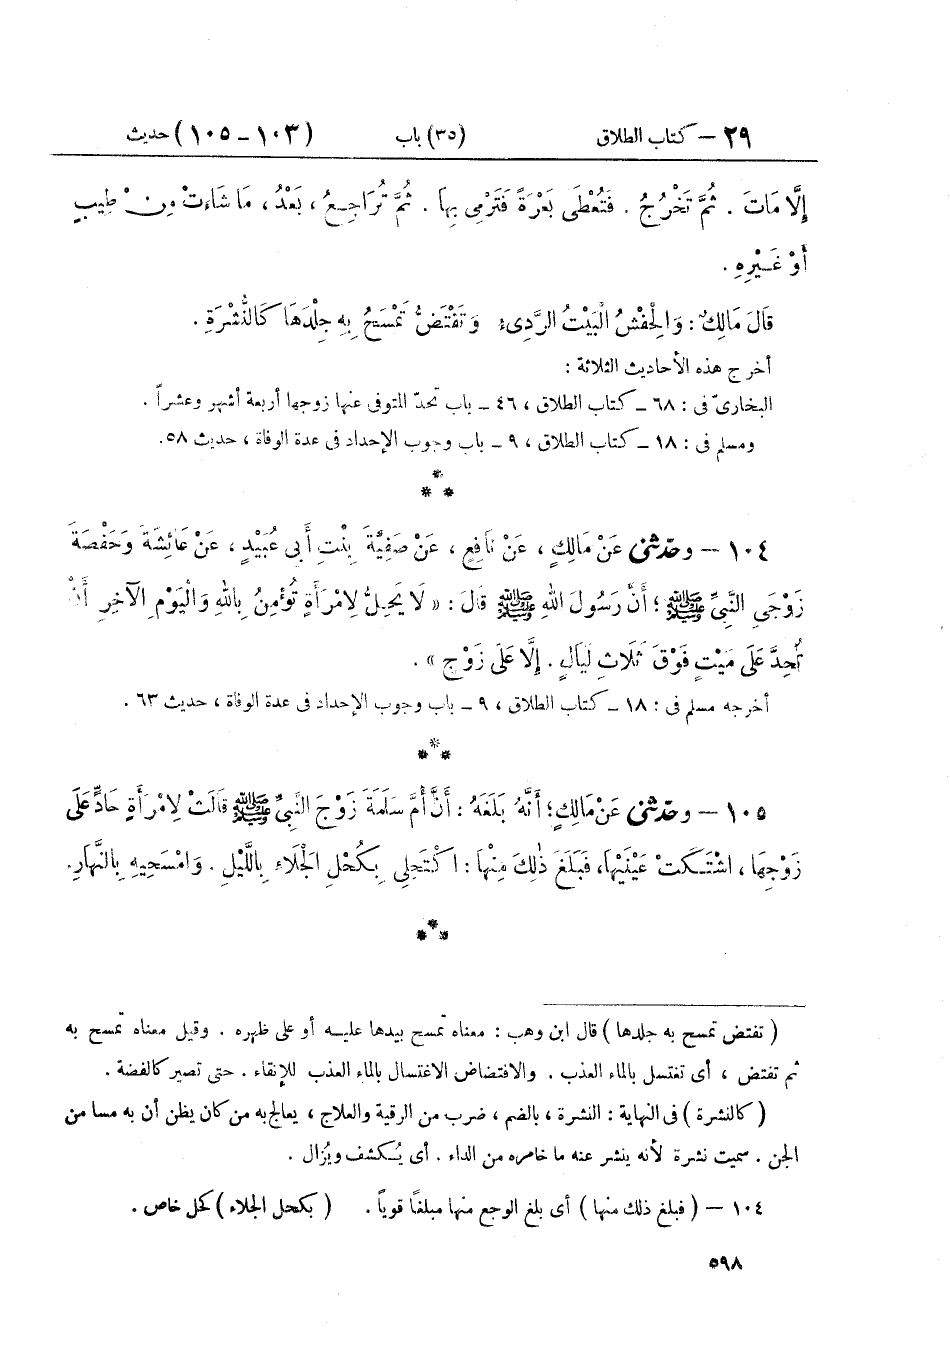 ٢٩ – كتاب الطلاق (٣٥) باب (١٠٣ – ١٠٥) حديث
إِلَّا مَاتَ . ثُمَّ تَخْرُجُ . فَتُعْطَى بَعْرَةً فَتَرْمِى بِهَا . ثُمَّ تُرَاجِعُ ، بَعْدُ ، مَا شَاءَتْ مِنْ طِيبٍ
أَوْ غَيْرِهِ .
قَالَ مَالِكٌ : وَالْحِفْشُ الْبَيْتُ الرَّدِىءُ وَتَفْتَضُّ تَمْسَحُ بِهِ جِلْدَهَا كَالنُّشْرَةِ .
أخرج هذه الأحاديث الثلاثة :
البخارىّ فى : ٦٨ – كتاب الطلاق ، ٤٦ – باب تحدّ المتوفى عنها زوجها أربعة أشهر وعشراً .
ومسلم فى : ١٨ – كتاب الطلاق ، ٩ – باب وجوب الإحداد فى عدة الوفاة ، حديث ٥٨.
*
* *
١٠٤ – وحدّثنى عَنْ مَالِكٍ ، عَنْ نَافِعٍ ، عَنْ صَفِيَّةَ بِنْتِ أَبِى عُبَيْدٍ ، عَنْ عَائِشَةَ وَحَفْصَةَ
زَوْجَىِ النَّبِىِّ ﷺ ؛ أَنَّ رَسُولَ اللهِ ﷺ قَالَ : « لَا يَحِلُّ لِامْرَأَةٍ تُؤْمِنُ بِاللهِ وَالْيَوْمِ الْآخِرِ أَنْ
تُحِدَّ عَلَى مَيْتٍ فَوْقَ ثَلَاثِ لَيَالٍ . إِلَّا عَلَى زَوْجٍ » .
أخرجه مسلم فى : ١٨ – كتاب الطلاق ، ٩ – باب وجوب الإحداد فى عدة الوفاة ، حديث ٦٣ .
*
* *
١٠٥ – وحدّثنى عَنْ مَالِكٍ ؛ أَنَّهُ بَلَغَهُ : أَنَّ أُمَّ سَلَمَةَ زَوْجَ النَّبِىِّ ﷺ قَالَتْ لِامْرَأَةٍ حَادٍّ عَلَى
زَوْجِهَا ، اشْتَكَتْ عَيْنَيْهَا، فَبَلَغَ ذٰلِكَ مِنْهَا : اكْتَحِلِى بِكُحْلِ الْجَلَاءِ بِاللَّيْلِ . وَامْسَحِيهِ بِالنَّهَارِ.
*
* *
( تفتض تمسح به جلدها ) قال ابن وهب : معناه تمسح بيدها عليه أو على ظهره . وقيل معناه تمسح به
ثم تفتض ، أى تغتسل بالماء العذب . والافتضاض الاغتسال بالماء العذب للإنقاء . حتى تصير كالفضة .
( كالنشرة ) فى النهاية : النشرة ، بالضم ، ضرب من الرقية والعلاج ، يعالج به من كان يظن أن به مسا من
الجن . سميت نشرة لأنه ينشر عنه ما خامره من الداء . أى يُكشف ويُزال .
١٠٤ – ( فبلغ ذلك منها ) أى بلغ الوجع منها مبلغًا قوياً . ( بكحل الجلاء ) كحل خاص .
٥٩٨